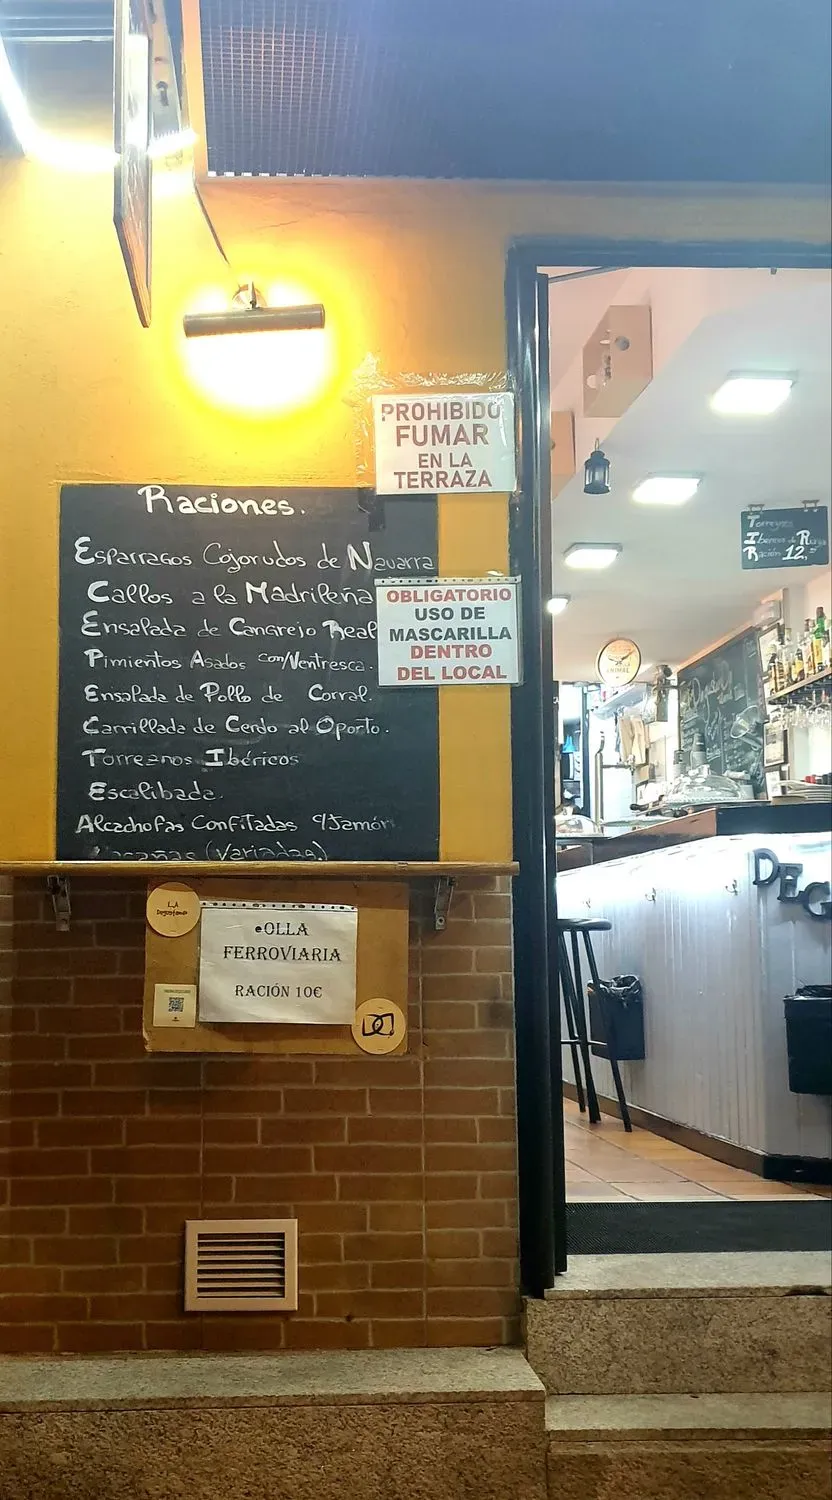 PROHIBIDO
FUMAR
EN LA
TERRAZA
Raciones.
Esparragos Cojorudos de Navarra
Callos a la Madrileña
Ensalada de Cangrejo Real
Pimientos Asados con/Ventresca.
Ensalada de Pollo de Corral.
Carrillada de Cerdo al Oporto.
Torreznos Ibéricos
Escalibada.
Alcachofas Confitadas c/Jamón
(Variadas)
OBLIGATORIO
USO DE
MASCARILLA
DENTRO
DEL LOCAL
LA
Degustando
OLLA
FERROVIARIA
RACIÓN 10€
Torreznos
Ibericos de
Ración 12,
DEG